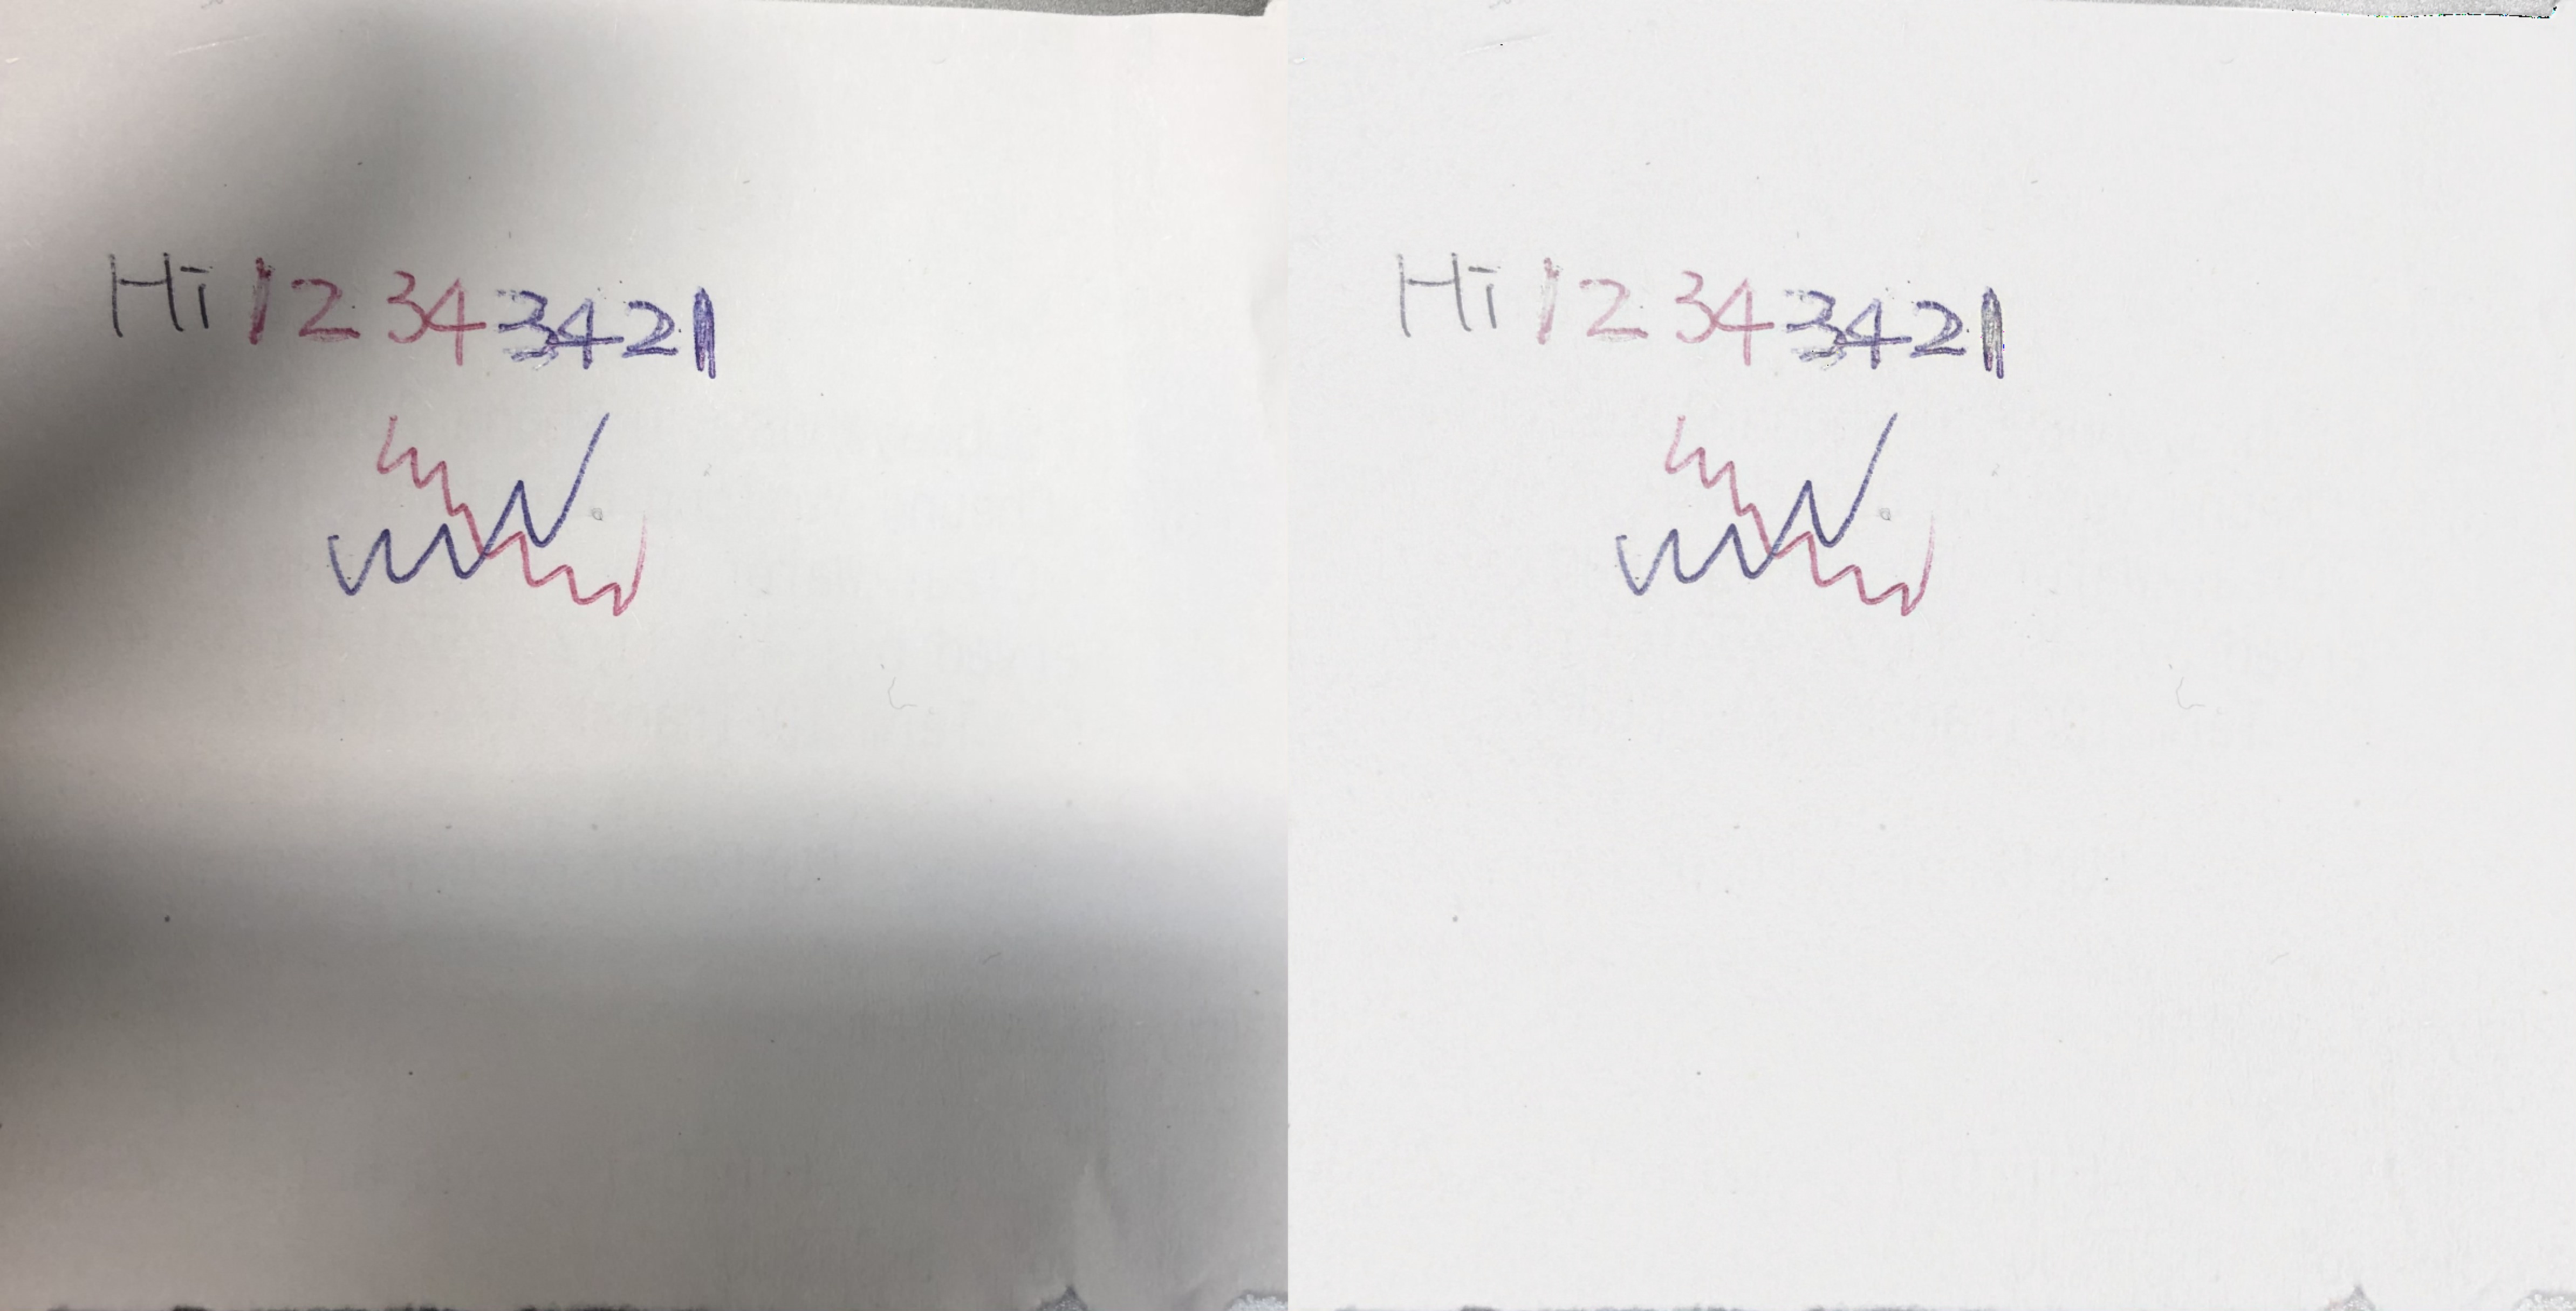 Hi 1234 3421
Hi 1234 3421